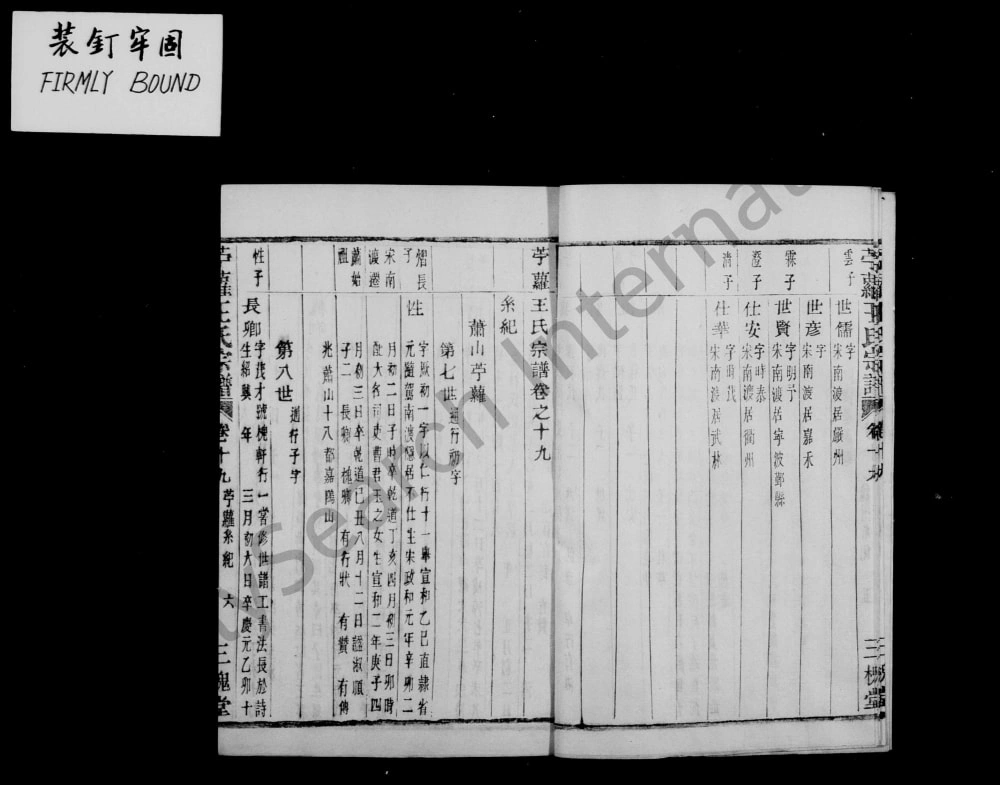 装釘牢固
FIRMLY BOUND
雲子
世儒 字
宋南渡居嚴州
世彦 字
宋南渡居嘉禾
霖子
世賢 字明予
宋南渡居寧波鄞縣
澄子
仕安 字時泰
宋南渡居衢州
清子
仕華 字時茂
宋南渡居武林
三槐堂
苧蘿王氏宗譜卷之十九
系紀
蕭山苧蘿
第七世 通行初字
熠長子宋南渡遷蕭始祖
性
字厥初一字以仁行十一舉宣和乙巳直隷省
元隨駕南渡隱居不仕生宋政和元年辛卯二
月初二日子時卒乾道丁亥四月初三日卯時
配大名司吏曹君玉之女生宣和二年庚子四
月初三日卒乾道己丑八月十二日謚淑順
子二 長卿 槐卿 有行狀 有贊 有傳
兆蕭山十八都嘉鴎山
第八世 通行子字
性子
長卿
字茂才號槐軒行一嘗修世譜工書法長於詩
生紹興 年 三月初六日卒慶元乙卯十
苧蘿王氏宗譜 卷十九 苧蘿系紀 六 三槐堂
SearchInternat